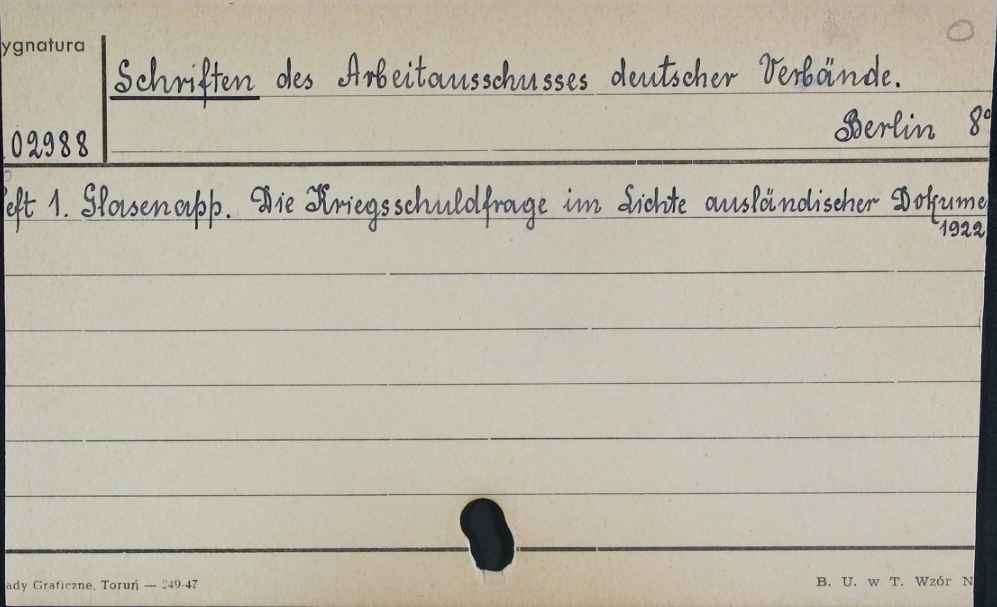 ygnatura
Schriften des Arbeitausschusses deutscher Verbände.
Berlin 8°
02988
eft 1. Glasenapp. Die Kriegsschuldfrage im Lichte ausländischer Dokume
1922
ady Graficzne, Toruń — 249-47
B. U. w T. Wzór N